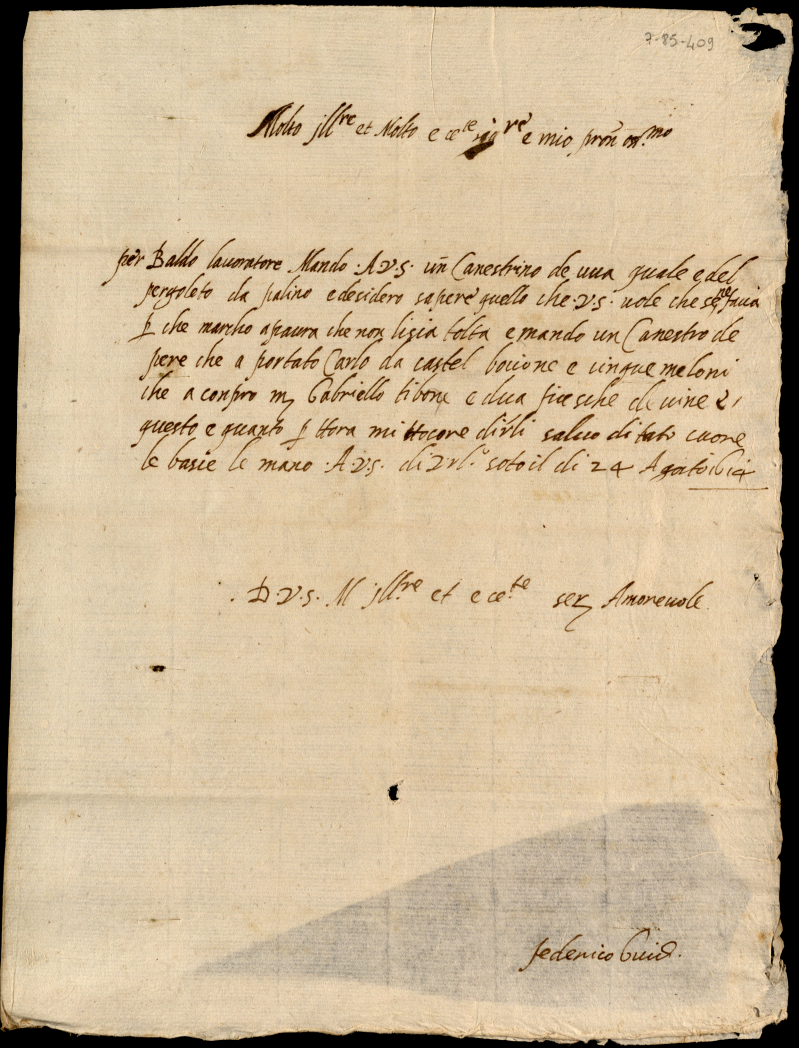 7-85-409
Molto Jllre et Molto e cete sigre e mio pron oss.mo
per Baldo lauoratore Mando .A.V.S. un Canestrino de uua quale e del
pergoleto da palino e desidero sapere quello che .V.S. uole che se ne facia
p che marcho a paura che non li sia tolta e mando un Canestro de
pere che a portato Carlo da castel bocione e cinque meloni
che a conpro m Gabriello e dua fiesche di uine
questo e quanto p hora mi hocore dirli saluo di tuto cuore
le bacie le mano .A.V.S. di soto il di 24 Agosto
. D.V.S. M Jll.re et e ce.te ser Amoreuole
federico Guid.